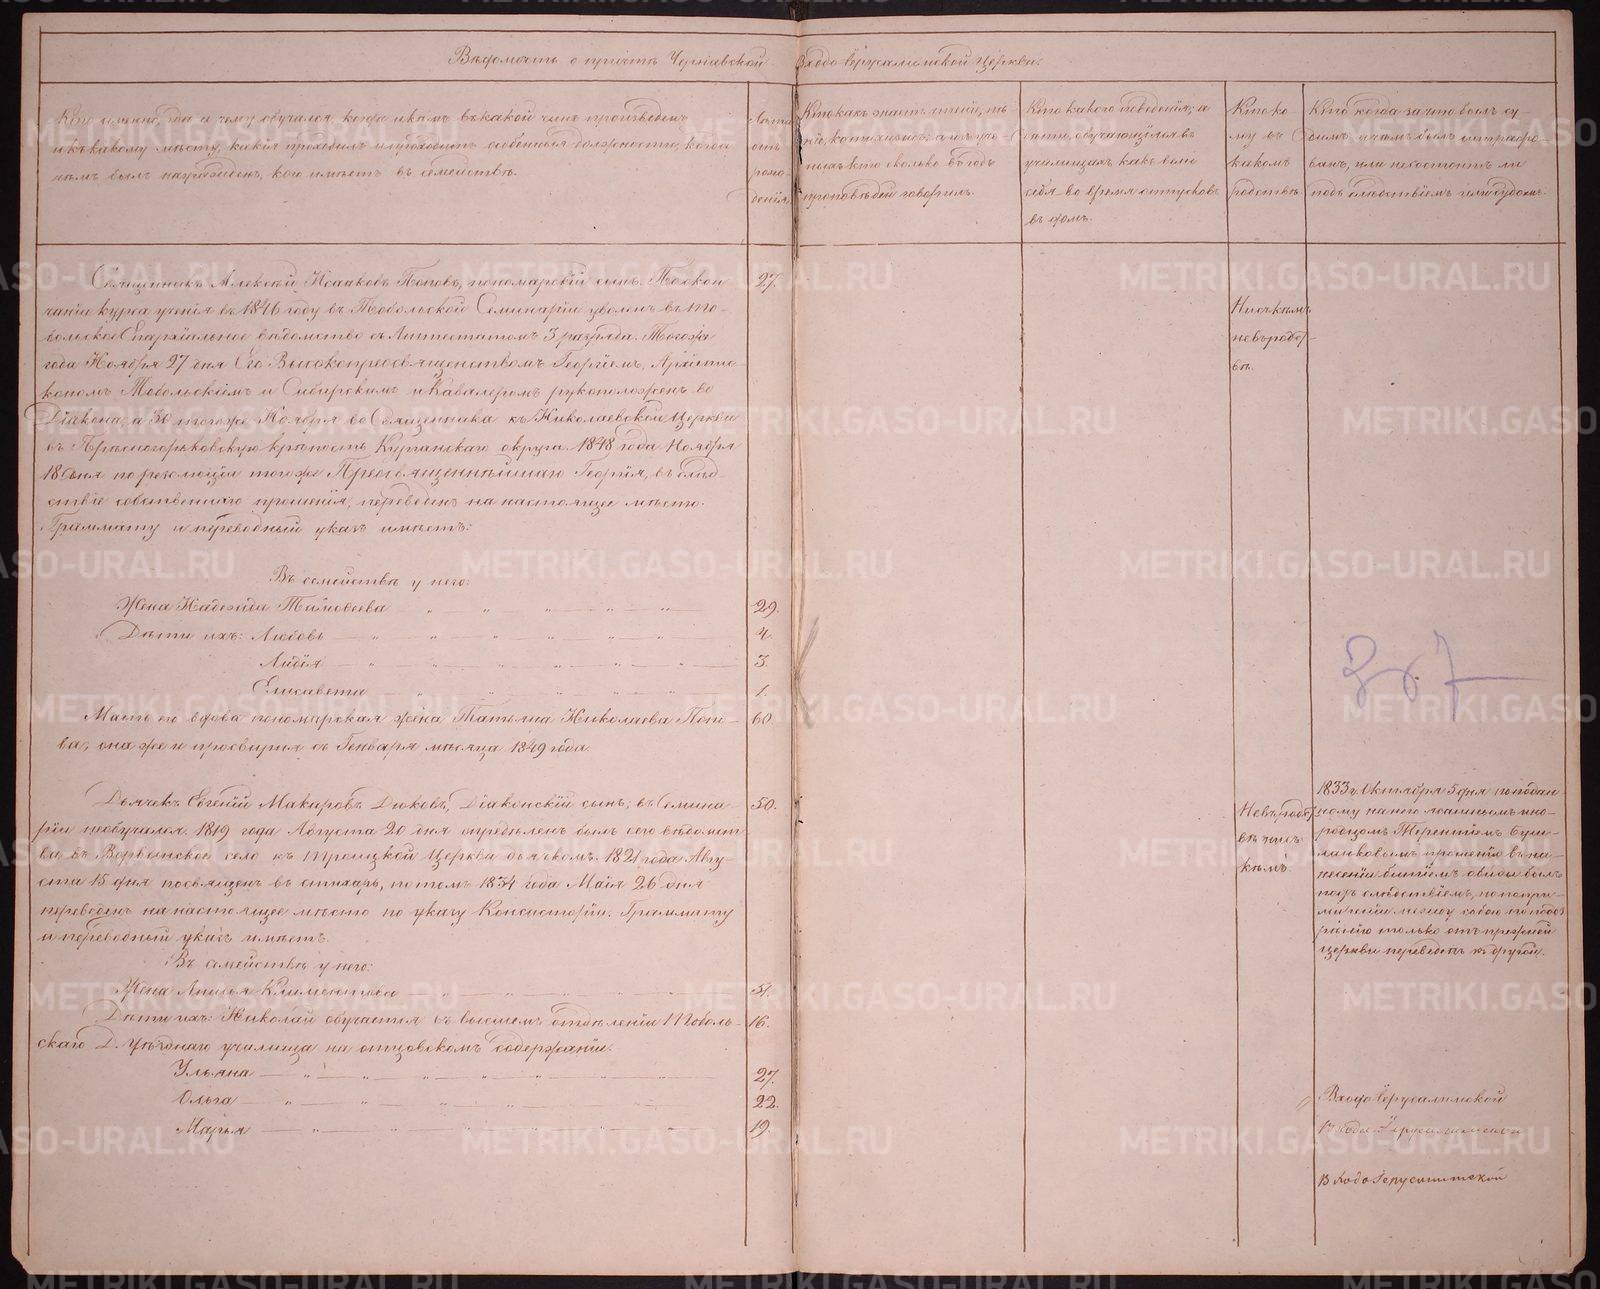 Вѣдомость о причтѣ Чернавской Входо Іерусалимской Церкви.
Кто именно, гдѣ и чему обучался, когда и кѣмъ въ какой чинъ произведенъ
и къ какому мѣсту, какія проходилъ и проходитъ особенныя должности, когда
чѣмъ былъ награжденъ, кого имѣетъ въ семействѣ.
Лѣта
отъ
рож-
денія
Кто какъ знаетъ чтеніе, пѣ-
ніе, катихизисъ; а изъ уче-
ныхъ кто сколько въ годъ
проповѣдей говорилъ.
Кто какого поведенія; а
дѣти, обучающіяся въ
училищахъ, какъ вели
себя во время отпусковъ
въ домъ.
Кто ко
му въ
какомъ
родствѣ
Кто когда за что былъ су
димъ, и чѣмъ былъ штрафо
ванъ, или не состоитъ ли
подъ слѣдствіемъ или судомъ.
Священникъ Алексѣй Исааковъ Поповъ, пономарскій сынъ. По окон-
чаніи курса ученія въ 1846 году въ Тобольской Семинаріи уволенъ въ То-
больское Епархіальное вѣдомство съ Аттестатомъ 3 разряда. Того же
года Ноября 27 дня Его Высокопреосвященствомъ Георгіемъ, Архіепис-
копомъ Тобольскимъ и Сибирскимъ и Кавалеромъ рукоположенъ во
Діакона, а 30 того же Ноября во Священника къ Николаевской Церкви
въ Прѣсногорьковскую крѣпость Курганскаго округа. 1848 года Ноября
18 дня по резолюціи того же Преосвященнѣйшаго Георгія, въ слѣд-
ствіе собственнаго прошенія, переведенъ на настоящее мѣсто.
Граммату и переводный указъ имѣетъ.
27.
Ни съ кѣмъ
не въ родст-
вѣ.
Въ семействѣ у него:
Жена Надежда Тимоѳеева 29.
Дѣти ихъ: Любовь 4.
Лидія 3.
Елисавета 1.
Мать его вдова пономарская жена Татьяна Николаева Попо- 60.
ва, она же и просвирня съ Генваря мѣсяца 1849 года.
Дьячекъ Евгеній Макаровъ Дюковъ, Діаконскій сынъ; въ Семина- 50.
ріи необучался. 1819 года Августа 20 дня опредѣленъ былъ сего вѣдомст
ва въ село къ Троицкой Церкви дьячкомъ. 1821 года Авгу-
ста 15 дня посвященъ въ стихарь, потомъ 1834 года Маія 26 дня
переведенъ на настоящее мѣсто по указу Консисторіи. Граммату
и переводный указъ имѣетъ.
Не въ родст
вѣ ни съ
кѣмъ.
1833 г. Октября 5 дня по подан
ному на него ясашнымъ ино-
родцомъ Терентіемъ
прошенію въ на-
несеніи битьемъ обиды былъ
подъ слѣдствіемъ, но по при-
миреніи между собою по подоз
рѣнію только отъ прежней
церкви переведенъ къ другой.
Въ семействѣ у него:
Жена Климентова 51.
Дѣти ихъ: Николай обучается въ высшемъ отдѣленіи Тоболь- 16.
скаго Д. Уѣзднаго училища на отцовскомъ содержаніи.
Ульяна 27.
Ольга 22.
Марья 19.
Входо Іерусалимской
Входо Іерусалимской
Входо Іерусалимской
METRIKI.GASO-URAL.RU